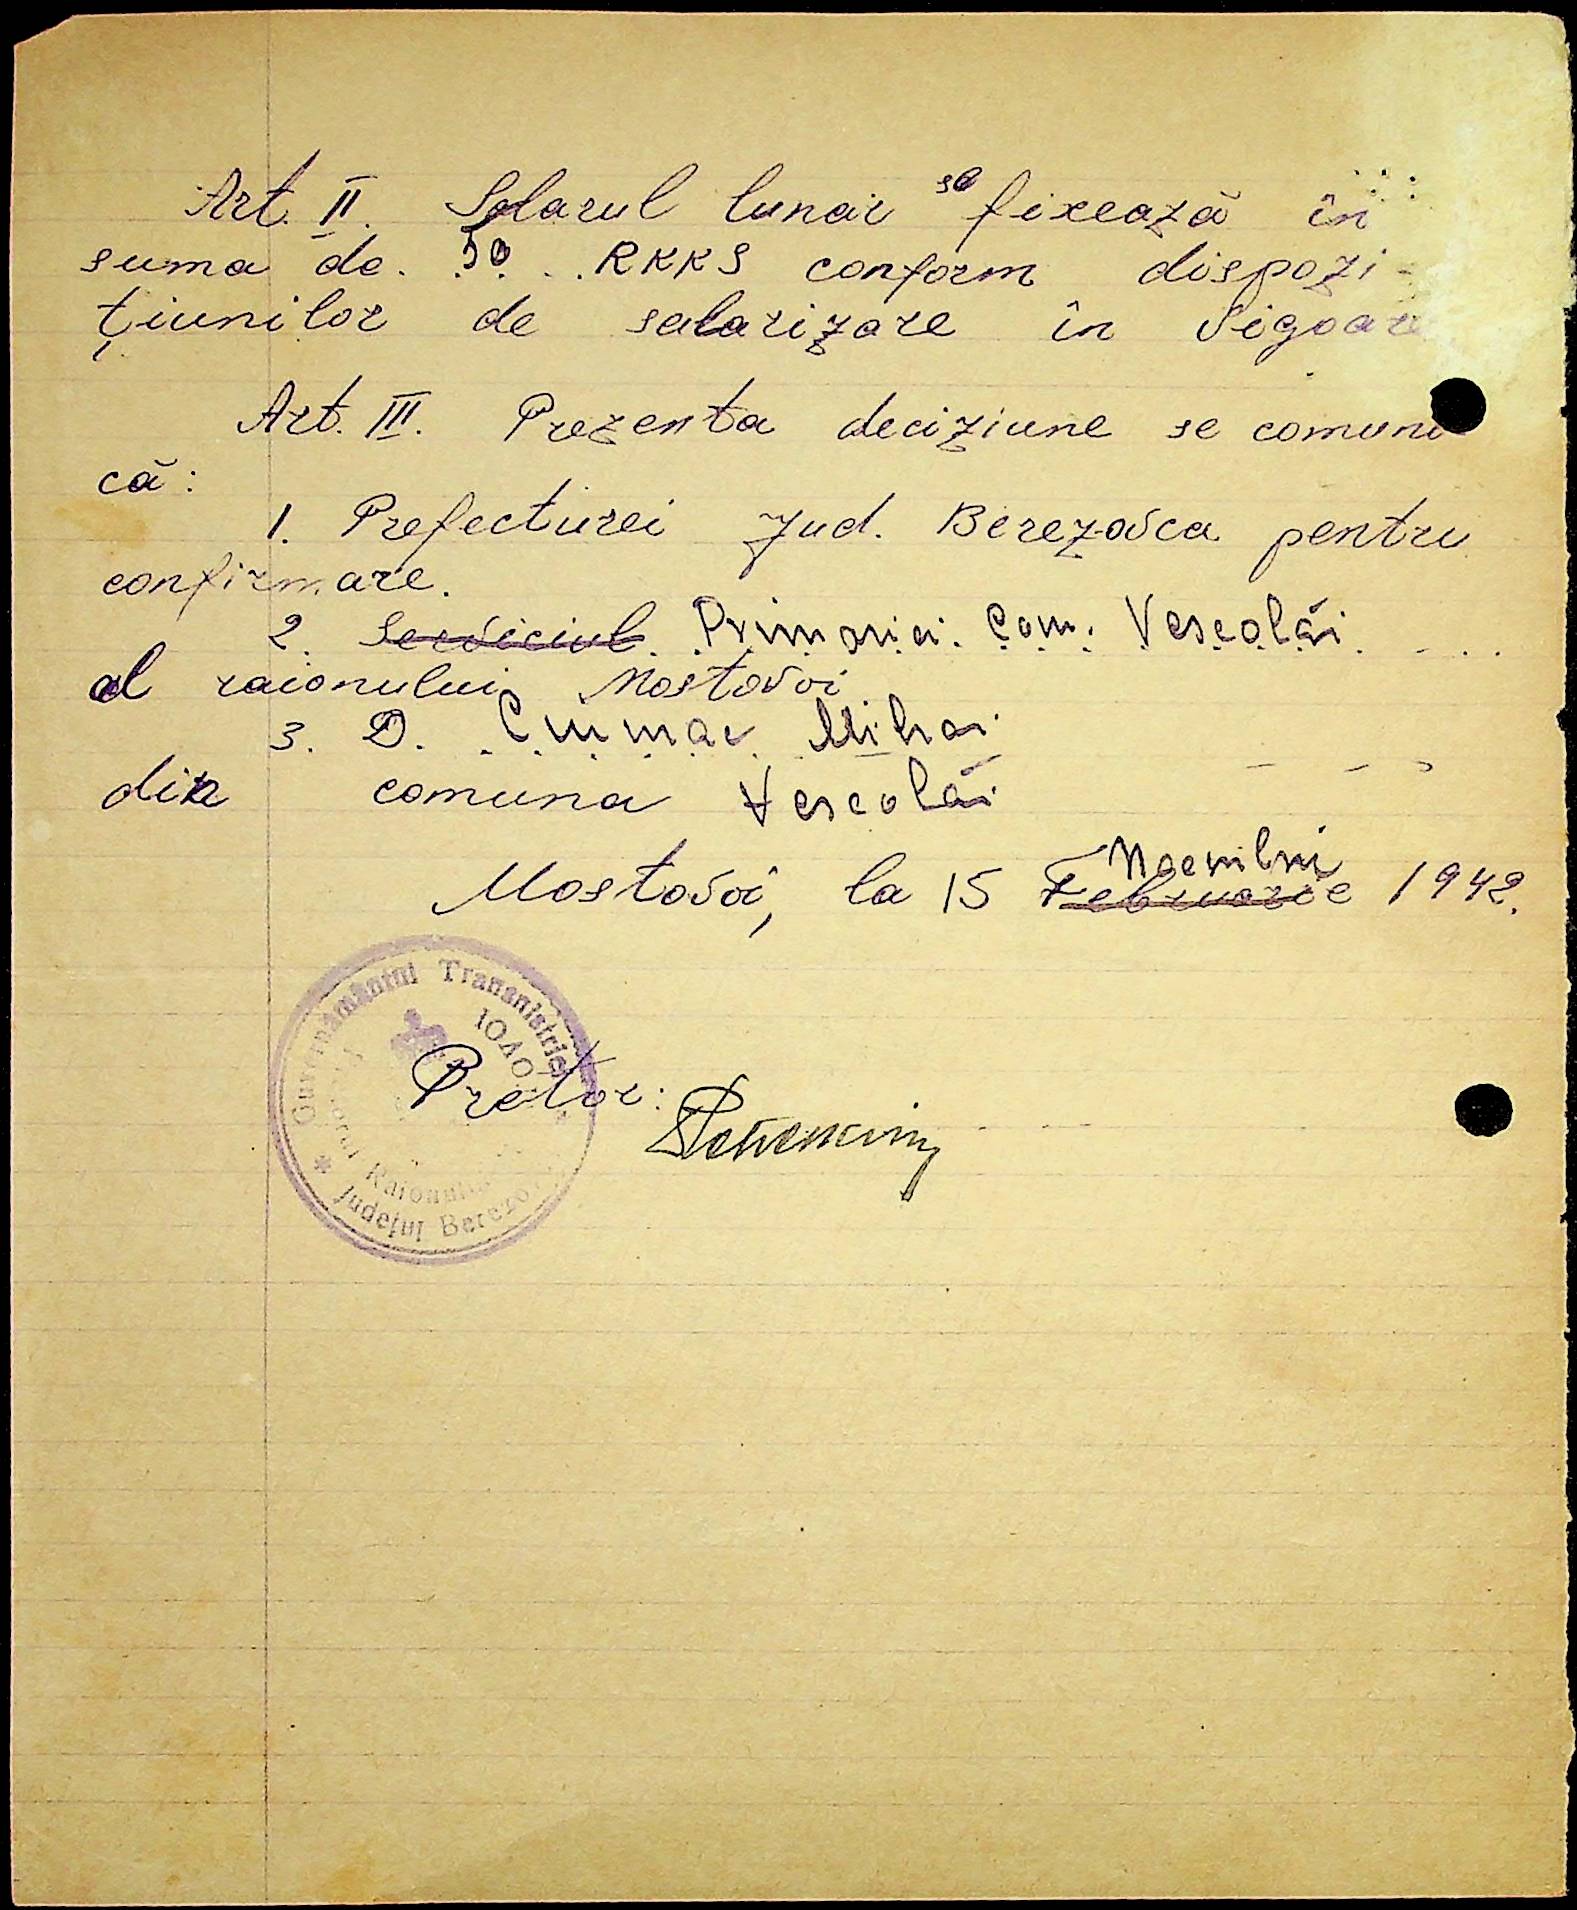 Art. II. Salarul lunar se fixează în
suma de. 50 .. RKKS conform dispozi-
ţiunilor de salarizare în vigoare
Art. III. Prezenta deciziune se comuni
că:
1. Prefecturei Jud. Berezovca pentru
confirmare.
2. Serviciul Primariei Com. Vescolăi
al raionului Mostovoi
3. D. Ciumac Mihai
din comuna Vescolăi
Noembrii
Mostovoi, la 15 Februarie 1942.
Guvernământul Transnistriei
Pretor:
Raionului
Judeţul Berezo